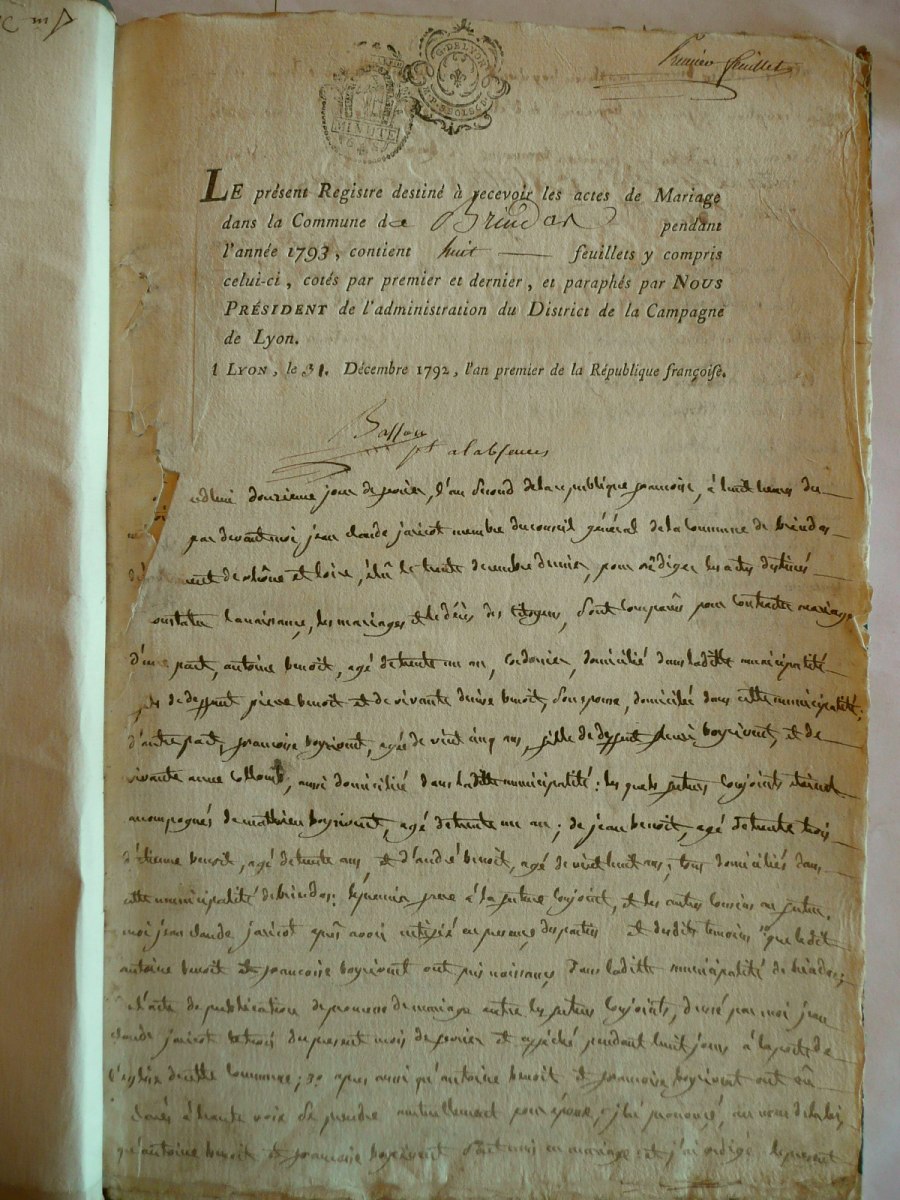 G. DE LYON
MINUTE
Premier feuillet
LE présent Registre destiné à recevoir les actes de Mariage
dans la Commune de Brindas pendant
l'année 1793, contient huit feuillets y compris
celui-ci, cotés par premier et dernier, et paraphés par NOUS
PRÉSIDENT de l'administration du District de la Campagne
de Lyon.
LYON, le 31. Décembre 1792, l'an premier de la République françoise.
pt a la bsence
douzieme jour de fevrier, l'an second de la republique francoise, à huit heures du
par devant moi jean claude jaricot membre du conseil général de la commune de brindas
de rhône et loire, élû le trente decembre dernier, pour rédiger les actes destinés
constater la naissance, les mariages et le décés des citoyens, sont comparûs pour contracter mariage
d'une part, antoine benoit, agé de trente un an, cordonier, domicilié dans laditte municipalité
fils de deffunt pierre benoit et de vivante benoit, son epouse, domicilié dans cette municipalité;
d'autre part, francoise boyrivent, agée de vint cinq ans, fille de deffunt boyrivent, et de
vivante anne Collomb, aussi domicilié dans laditte municipalité: les quels futurs conjoints
accompagnés de mathieu boyrivent, agé de trente un an; de jean benoit, agé de trente trois
d'étienne benoit, agé de trente ans et d'andré benoit, agé de vint huit ans; tous domiciliés dans
cette municipalité de brindas: le premier frere à la future conjoint, et les autres cousins au futur.
moi jean claude jaricot aprês avoir en presence des parties et desdits temoins que ledit
antoine benoit et francoise boyrivent ont pris naissance dans laditte municipalité de brindas;
l'acte de publication de promesse de mariage entre les futurs conjoints, dressé par moi jean
claude jaricot le trois du present mois de fevrier et affiché pendant huit jours à la porte de
l'eglise de cette commune; 3o apres aussi qu'antoine benoit et francoise boyrivent ont eû
à haute voix se prendre mutuellement pour epoux, j'ai prononcé, au nom de la loi,
qu'antoine benoit et francoise boyrivent sont unis en mariage et j'ai rédigé le present